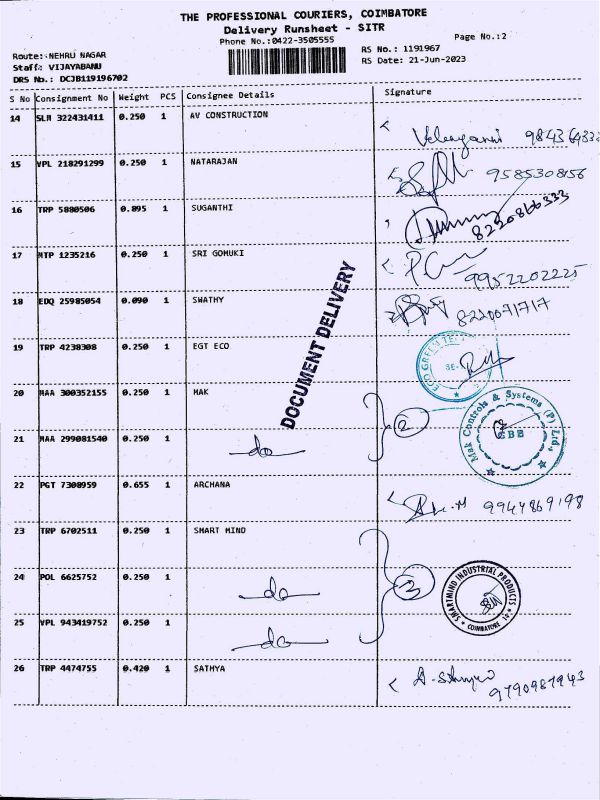 THE PROFESSIONAL COURIERS, COIMBATORE
Delivery Runsheet - SITR
Phone No.:0422-3505555
Page No.:2
Route: NEHRU NAGAR
RS No.: 1191967
Staff: VIJAYABANU
RS Date: 21-Jun-2023
DRS No.: DCJB119196702
S No Consignment No Weight PCS Consignee Details Signature
14 SLM 322431411 0.250 1 AV CONSTRUCTION
15 VPL 218291299 0.250 1 NATARAJAN 9585308156
16 TRP 5880506 0.895 1 SUGANTHI 8220866333
17 MTP 1235216 0.250 1 SRI GOMUKI 9952202225
18 EDQ 25985054 0.090 1 SWATHY 8220071717
DOCUMENT DELIVERY
19 TRP 4238308 0.250 1 EGT ECO
ECO GREEN
20 MAA 300352155 0.250 1 MAK
2
Mak Controls & Systems (P) Ltd.,
CBE
21 MAA 299081540 0.250 1 do
22 PGT 7300959 0.655 1 ARCHANA 9944869198
23 TRP 6702511 0.250 1 SMART MIND
24 POL 6625752 0.250 1 do
3
SMARTMIND INDUSTRIAL PRODUCTS
COIMBATORE
25 VPL 943419752 0.250 1 do
26 TRP 4474755 0.420 1 SATHYA 9790987943